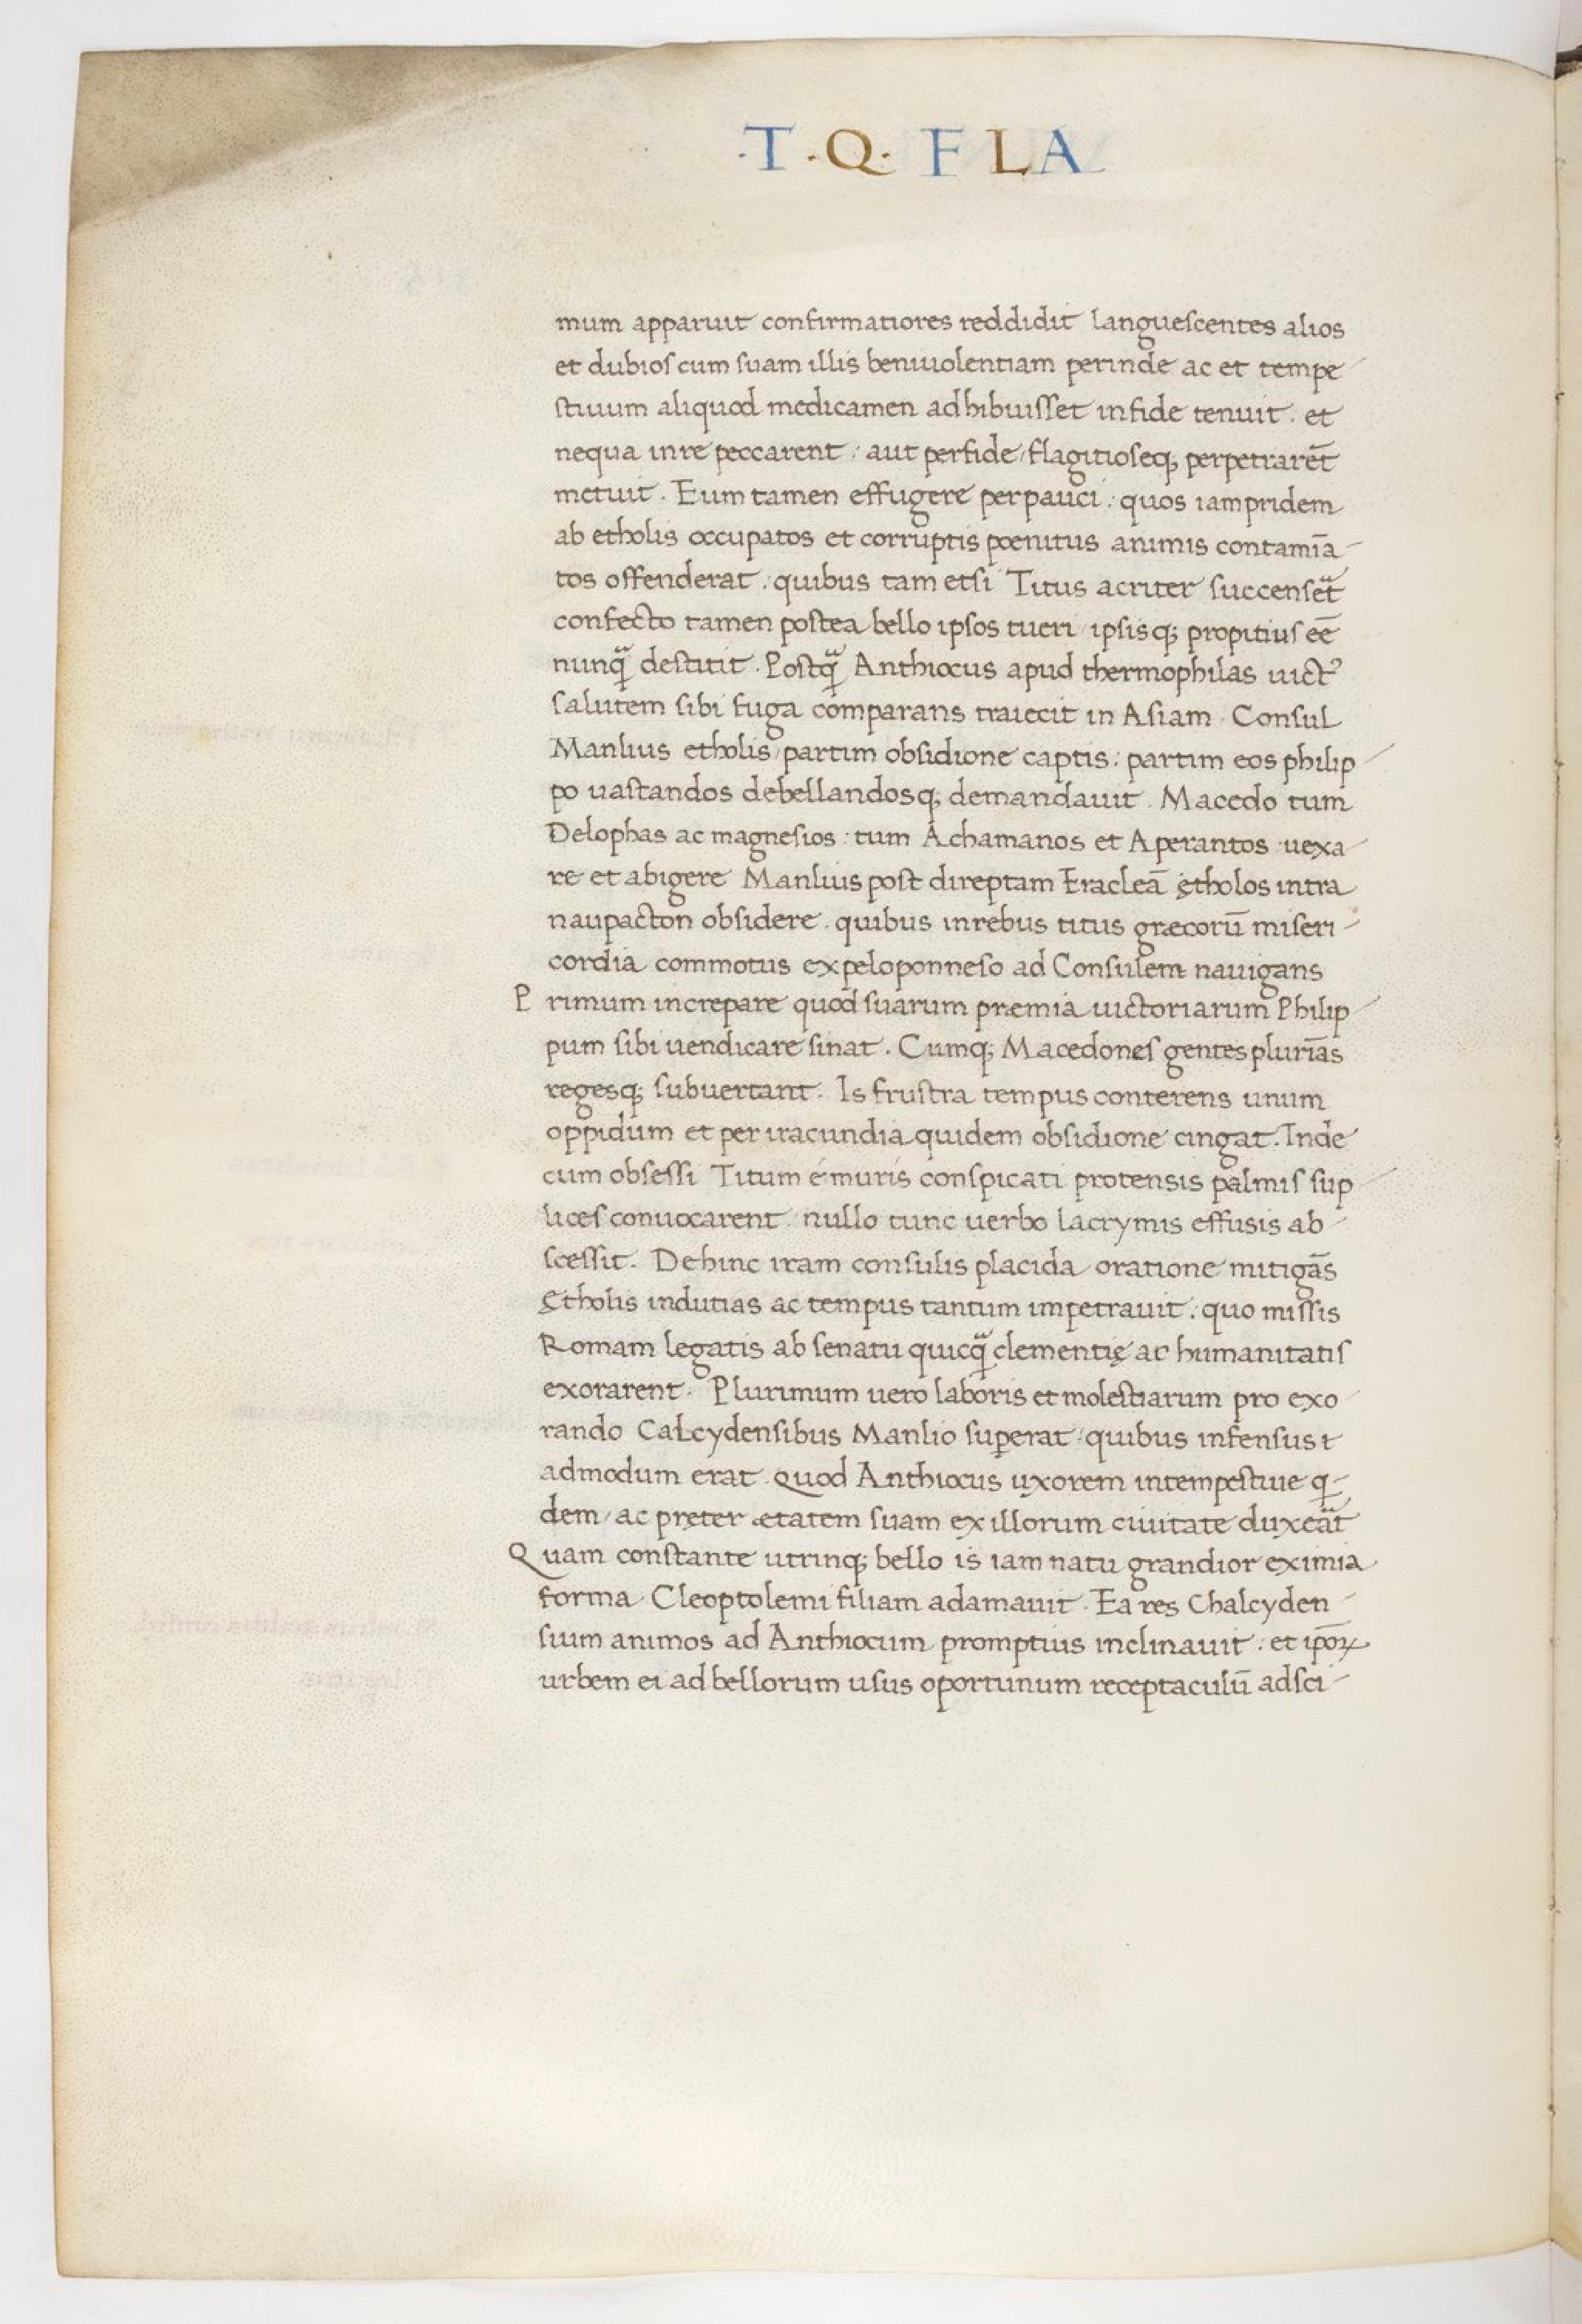 ·T·Q· F LA
mum apparuit confirmatiores reddidit languescentes alios
et dubios cum suam illis beniuolentiam perinde ac et tempe
stiuum aliquod medicamen adhibuisset in fide tenuit. et
nequa in re peccarent: aut perfide/ flagitioseq; perpetrarēt
metuit. Eum tamen effugere perpauci: quos iampridem
ab etholis occupatos et corruptis poenitus animis contamīa
tos offenderat: quibus tam etsi Titus acriter succenseᵃt
confecto tamen postea bello ipsos tueri/ ipsisq; propitius eē
nunqᵃ destitit. Postqᵃ Anthiocus apud thermophilas uictꝰ
salutem sibi fuga comparans traiecit in Asiam. Consul
Manlius etholis/ partim obsidione captis: partim eos philip
po uastandos debellandosq; demandauit. Macedo tum
Delophas ac magnesios: tum Achamanos et Aperantos uexa
re et abigere Manlius post direptam Eracleā ętholos intra
naupacton obsidere. quibus in rebus titus græcorū miseri
cordia commotus ex peloponneso ad Consulem nauigans
Primum increpare quod suarum præmia uictoriarum Philip
pum sibi uendicare sinat. Cumq; Macedones gentes plurīas
regesq; subuertant. Is frustra tempus conterens unum
oppidum et per iracundia quidem obsidione cingat. Inde
cum obsessi Titum é muris conspicati protensis palmis sup
lices conuocarent nullo tunc uerbo lacrymis effusis ab
scessit. Dehinc iram consulis placida oratione mitigās
Ętholis indutias ac tempus tantum impetrauit: quo missis
Romam legatis ab senatu quicqᵃ clementię ac humanitatis
exorarent. Plurimum uero laboris et molestiarum pro exo
rando Calcydensibus Manlio superat: quibus infensus t
admodum erat. quod Anthiocus uxorem intempestiue q
dem/ ac pręter ætatem suam ex illorum ciuitate duxeᵃt
Quam constante utrinq; bello is iam natu grandior eximia
forma Cleoptolemi filiam adamauit. Ea res Chalcyden
sium animos ad Anthiocum promptius inclinauit: et ipoꝝ
urbem ei ad bellorum usus oportunum receptaculū adsci